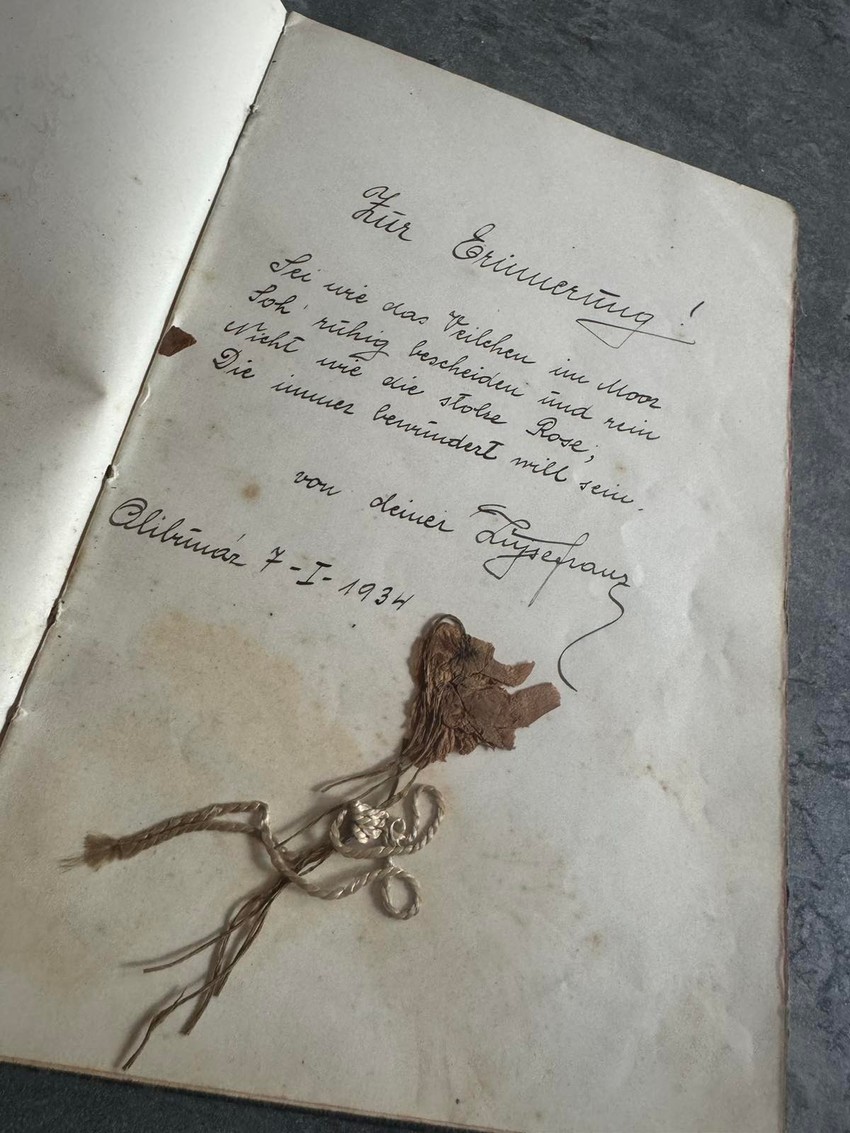 Zur Erinnerung!
Sei wie das Veilchen im Moos
Soh' ruhig bescheiden und rein
Nicht wie die stolze Rose,
Die immer bewundert will sein.
von deiner
Alibunár 7-I-1934